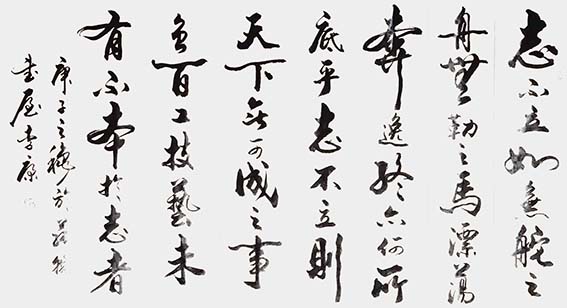 志不立如無舵之
舟無勒之馬漂蕩
奔逸終亦何所
底乎志不立則
天下無可成之事
雖百工技藝未
有不本於志者
庚子之穐於
書屋李康